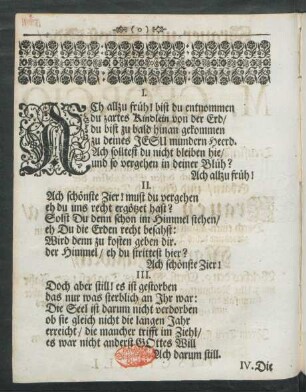 (0)
I.
ACh allzu früh! bist du entnommen
du zartes Kindlein von der Erd/
du bist zu bald hinan gekommen
zu deines JESU mundern Heerd.
Ach solltest du nicht bleiben hie/
und so vergehen in deiner Blüh?
Ach allzu früh!
II.
Ach schönste Zier! must du vergehen
eh du uns recht ergötzet hast?
Solst Du denn schon im Himmel stehen/
eh Du die Erden recht besahst:
Wird denn zu kosten geben dir
der Himmel/ eh du strittest hier?
Ach schönste Zier!
III.
Doch aber still! es ist gestorben
das nur was sterblich an Ihr war:
Die Seel ist darum nicht verdorben
ob sie gleich nicht die langen Jahr
erreicht/ die mancher trifft im Ziehl/
es war nicht anderst GOttes Will
Ach darum still.
IV. Die